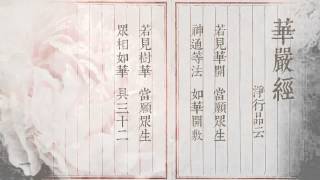 華嚴經
淨行品云
若見華開 當願眾生
神通等法 如華開敷
若見樹華 當願眾生
眾相如華 具三十二